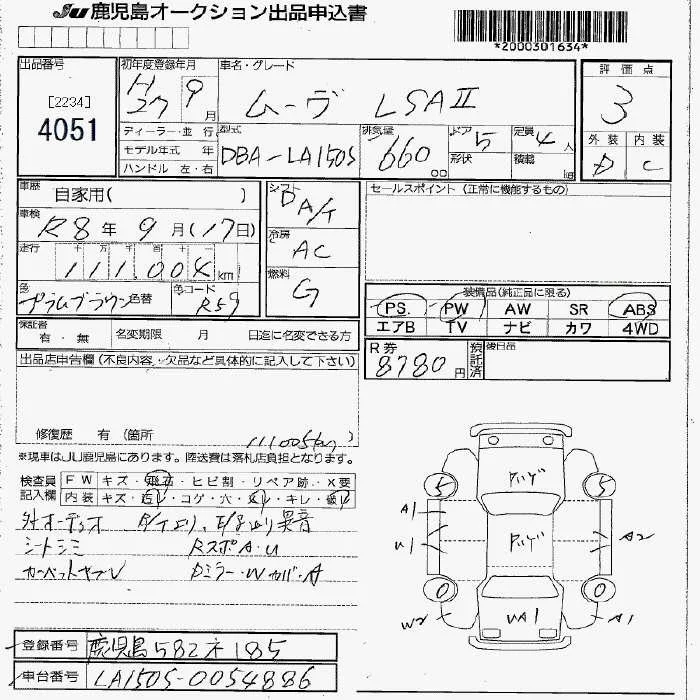 JU 鹿児島オークション出品申込書
*2000301634*
出品番号
[2234]
4051
初年度登録年月
H27 9月
車名・グレード
ムーヴ LSAⅡ
評価点
3
外装 内装
D C
ディーラー・並行
モデル年式 年
ハンドル 左・右
型式
DBA-LA150S
排気量
660 cc
ドア 5
形状
定員 4人
積載 kg
車歴
自家用( )
車検
R8年9月(17日)
走行
十 万 千 百 十 一
111,004 km
色
プラムブラウン
色替
色コード
R59
シフト
DA/T
冷房
AC
燃料
G
セールスポイント (正常に機能するもの)
装備品(純正品に限る)
PS. PW AW SR ABS
エアB TV ナビ カワ 4WD
保証書
有・無
名変期限 月 日迄に名変できる方
R券
8780円
預託済
後日品
出品店申告欄 (不良内容・欠品など具体的に記入して下さい)
修復歴 有 (箇所 )
111005km
※現車はJU鹿児島にあります。陸送費は落札店負担となります。
検査員記入欄
FW キズ・飛石・ヒビ割・リペア跡・X要
内装 キズ・・コゲ・穴・・キレ・
外オーディオ
シートシミ RスポA・U
Dミラー・Wカバ・A
5 5
A1
U1 A2
0 0
W2 UA1 A1
登録番号 鹿児島582ネ185
車台番号 LA150S-0054886